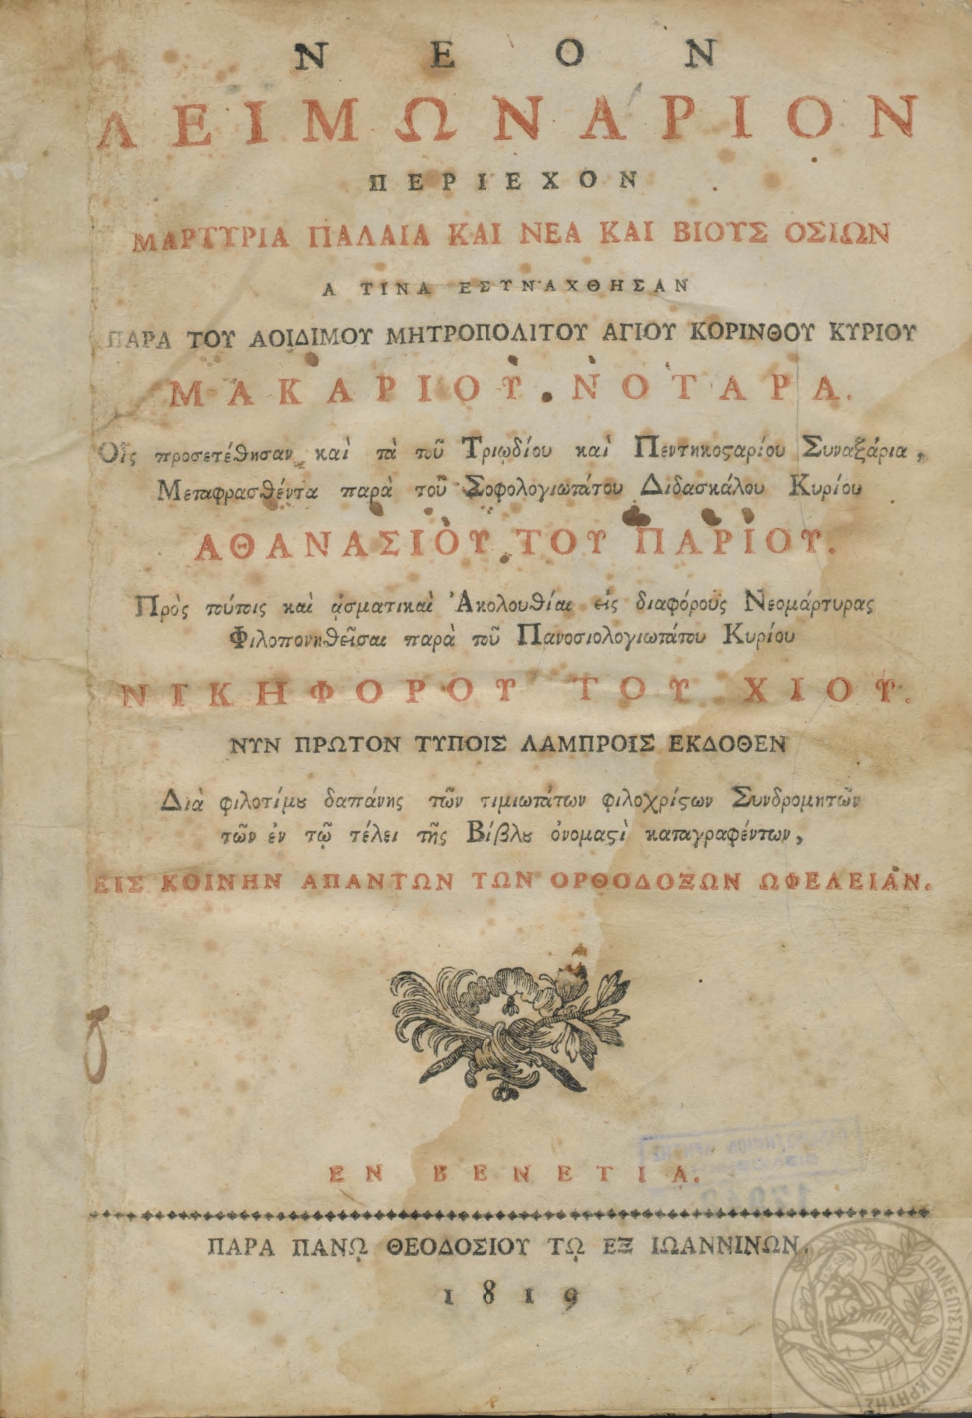 ΝΕΟΝ
ΛΕΙΜΩΝΑΡΙΟΝ
ΠΕΡΙΕΧΟΝ
ΜΑΡΤΥΡΙΑ ΠΑΛΑΙΑ ΚΑΙ ΝΕΑ ΚΑΙ ΒΙΟΥΣ ΟΣΙΩΝ
Α ΤΙΝΑ ΕΣΥΝΑΧΘΗΣΑΝ
ΠΑΡΑ ΤΟΥ ΑΟΙΔΙΜΟΥ ΜΗΤΡΟΠΟΛΙΤΟΥ ΑΓΙΟΥ ΚΟΡΙΝΘΟΥ ΚΥΡΙΟΥ
ΜΑΚΑΡΙΟΥ ΝΟΤΑΡΑ.
Οἷς προσετέθησαν καὶ τὰ τοῦ Τριῳδίου καὶ Πεντηκοϛαρίου Συναξάρια,
Μεταφρασθέντα παρὰ τοῦ Σοφολογιωτάτου Διδασκάλου Κυρίου
ΑΘΑΝΑΣΙΟΥ ΤΟΥ ΠΑΡΙΟΥ.
Πρὸς τούτοις καὶ ᾀσματικαὶ Ἀκολουθίαι εἰς διαφόρους Νεομάρτυρας
Φιλοπονηθεῖσαι παρὰ τοῦ Πανοσιολογιωτάτου Κυρίου
ΝΙΚΗΦΟΡΟΥ ΤΟΥ ΧΙΟΥ.
ΝΥΝ ΠΡΩΤΟΝ ΤΥΠΟΙΣ ΛΑΜΠΡΟΙΣ ΕΚΔΟΘΕΝ
Διὰ φιλοτίμȣ δαπάνης τῶν τιμιωτάτων φιλοχρίϛων Συνδρομητῶν
τῶν ἐν τῷ τέλει τῆς Βίβλȣ ὀνομαϛὶ καταγραφέντων,
ΕΙΣ ΚΟΙΝΗΝ ΑΠΑΝΤΩΝ ΤΩΝ ΟΡΘΟΔΟΞΩΝ ΩΦΕΛΕΙΑΝ.
ΕΝ ΒΕΝΕΤΙΑ.
ΠΑΡΑ ΠΑΝΩ ΘΕΟΔΟΣΙΟΥ ΤΩ ΕΞ ΙΩΑΝΝΙΝΩΝ.
1819
ΠΑΝΕΠΙΣΤΗΜΙΟ ΚΡΗΤΗΣ